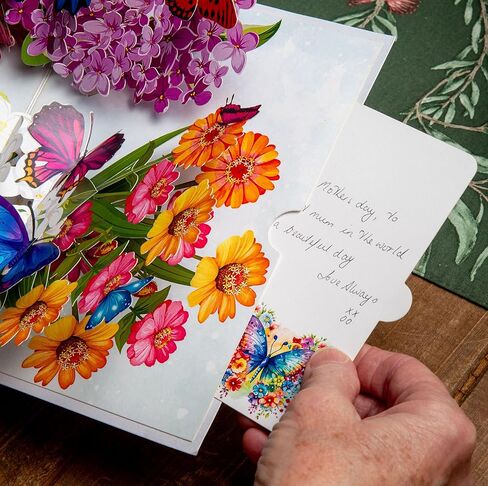 Mothers day, to
mum in the world
a beautiful day
Love Always
xx
oo